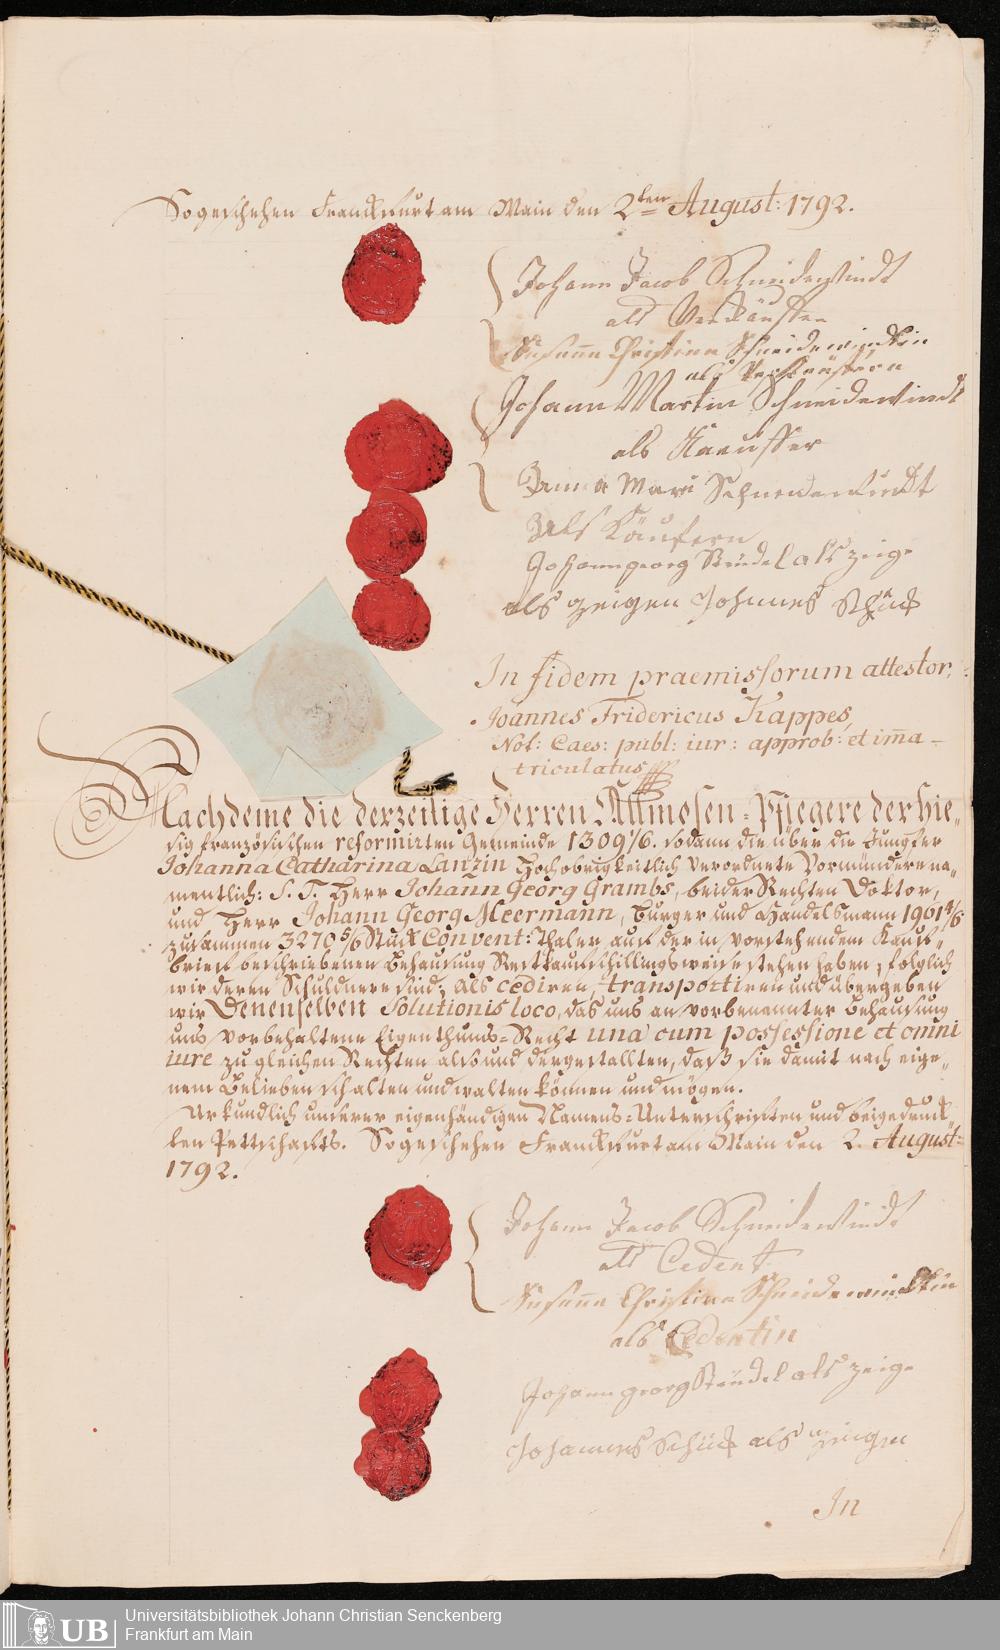 So geschehen Franckfurt am Main den 2ten August: 1792.
Johann Jacob Schneidewindt
als Verkäuffer
Susanna Christina Schneidewindtin
als Verkäufferin
Johann Martin Schneidewindt
als Kaeuffer
Anna Mari Schneidewindt
Als Käufern
Johann georg Steüdel als zeige
als zeigen Johannes Schük
In fidem praemissorum attestor,
Joannes Fridericus Kappes,
Not: Caes: publ: iur: approb: et im̅a-
triculatus
Nachdeme die derzeitige Herren Allmosen-Pflegere der hie„
sig französischen reformirten Gemeinde 1309 1/6. sodann die über die Jungfer
Johanna Catharina Lanzin Hochobrigkeitlich verordnete Vormündere na„
mentlich: S. T. Herr Johann Georg Grambs, beider Rechten Doktor,
und Herr Johann Georg Meermann, Burger und Handelsmann 1961 4/6
zusammen 3270 5/6 Stück Convent: Thaler, auf der in vorstehendem Kauf„
brief beschriebenen Behausung Restkaufschillingsweise stehen haben, folglich
wir deren Schuldnere sind; als cediren, transportiren und übergeben
wir Denenselben solutionis loco, das uns an vorbenannter Behausung
uns vorbehaltene Eigenthums-Recht una cum possessione et omni
iure zu gleichen Rechten also und dergestallten, daß sie damit nach eige„
nem Belieben schalten und walten können und mögen.
Urkundlich unserer eigenhändigen Namens-Unterschriften und beigedruck„
ten Pettschafts. So geschehen Franckfurt am Main den 2. August:
1792.
Johann Jacob Schneidewindt
als Cedent
Susanna Christina Schneidewindtin
als Cedentin
Johann georg Steüdel als zeige
Johannes Schük als zeigen
In
UB
Universitätsbibliothek Johann Christian Senckenberg
Frankfurt am Main